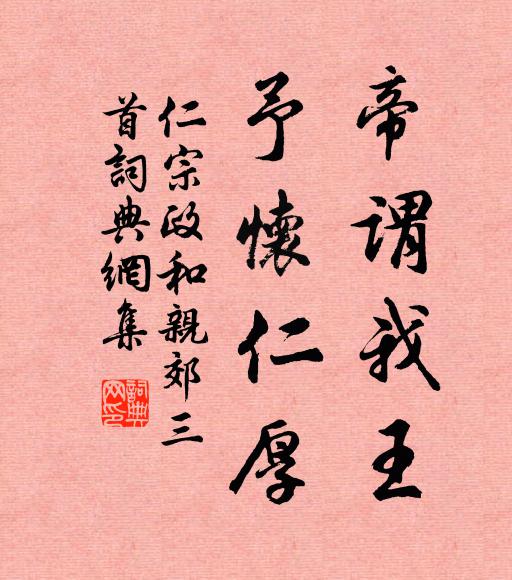 帝謂我王
予懷仁厚
仁宗政和親郊三
首詞典網集
詞典網印